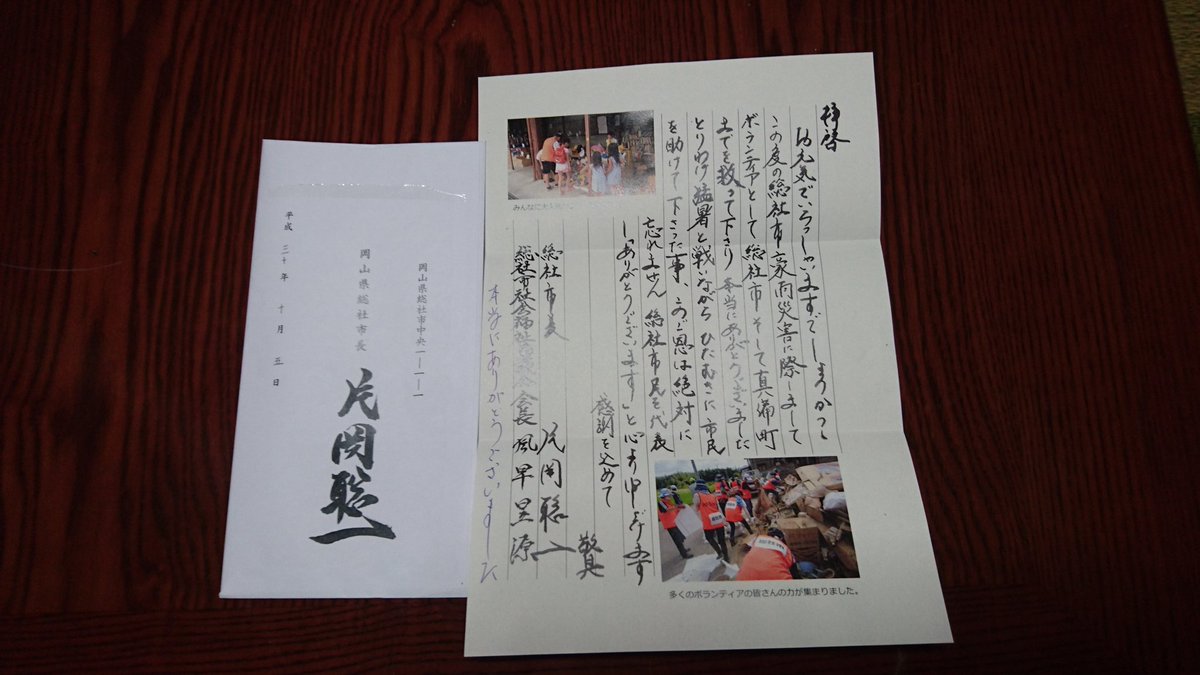 拝啓
お元気でいらっしゃいますでしょうか
この度の総社市豪雨災害に際しまして
ボランティアとして総社市そして真備町
までを救って下さり本当にありがとうございました
とりわけ猛暑と戦いながらひたむきに市民
を助けて下さった事、このご恩は絶対に
忘れません 総社市民を代表
し「ありがとうございます」と心より申し上げます
感謝を込めて
敬具
総社市長 片岡聡一
総社市社会福祉協議会会長 風早昱源
本当にありがとうございました
みんなに
多くのボランティアの皆さんの力が集まりました。
岡山県総社市中央一―一―一
岡山県総社市長 片岡聡一
平成三十年十月五日